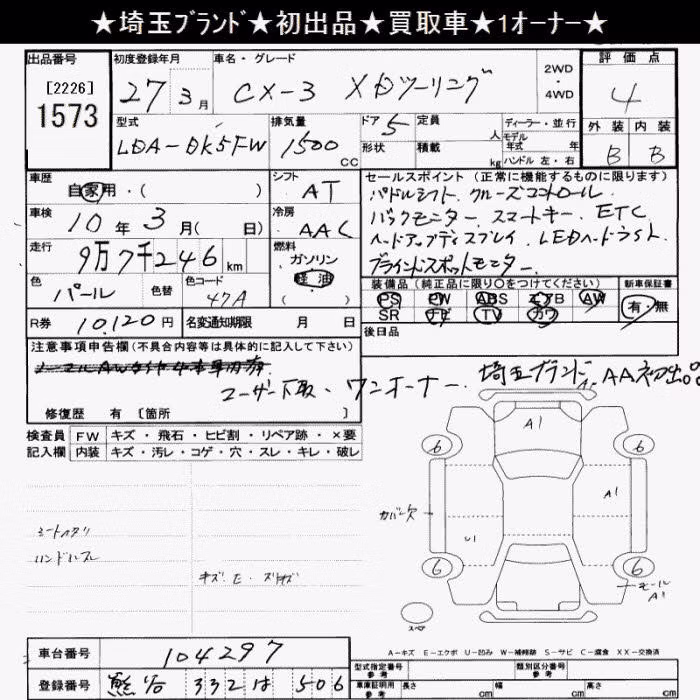 ★埼玉ブランド★初出品★買取車★1オーナー★
出品番号 初度登録年月 車名・グレード 2WD ・ 4WD 評価点
[2226] 1573 27年 3月 CX-3 XDツーリング 4
型式 排気量 ドア 定員 人 ディーラー・並行 外装 内装
LDA-DK5FW 1500cc 5 形状 積載 kg モデル年式 年 ハンドル 左・右 B B
車歴 自家用・( ) シフト AT セールスポイント (正常に機能するものに限ります)
パドルシフト. クルーズコントロール
車検 10年 3月( 日) 冷房 AAC バックモニター スマートキー. ETC
走行 9万7千246km 燃料 ガソリン 軽油 ( ) ヘッドアップディスプレイ. LEDヘッドライト
ブラインドスポットモニター.
色 パール 色替 色コード 47A 装備品 (純正品に限り○をつけてください) 新車保証書
PS PW ABS エアB AW 有・無
R券 10,120円 名変通知期限 月 日 SR ナビ TV カワ
後日品
注意事項申告欄 (不具合内容等は具体的に記入して下さい)
ユーザー下取. ワンオーナー. 埼玉ブランド. AA初出品
修復歴 有 [箇所 ]
検査員 FW キズ・飛石・ヒビ割・リペア跡・×要
記入欄 内装 キズ・汚レ・コゲ・穴・スレ・キレ・破レ
A1
6 6
A1
カバー欠
U1
シートヘタリ
ハンドルスレ
6 6
キズ. E. スリキズ
モール A1
スペア
A-キズ E-エクボ U-凹み W-補修跡 S-サビ C-腐食 XX-交換済
車台番号 104297
型式指定番号 参考 類別区分番号 参考
登録番号 熊谷 332 は 506
車庫証明用 参考 長さ cm 幅 cm 高さ cm